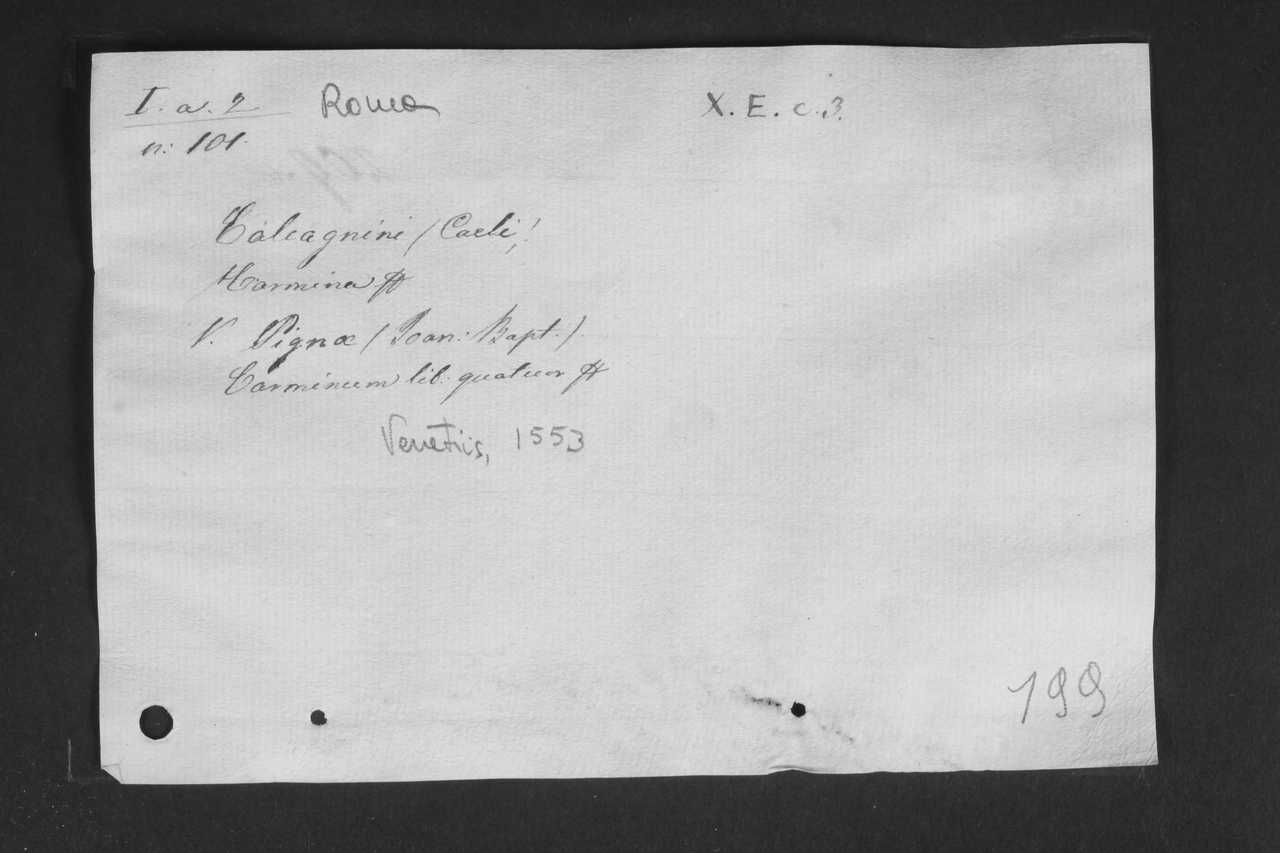 I. a. 2 Roma X. E. c. 3.
n: 101.
Calcagnini (Caeli)
Carmina
V. Pignæ (Joan: Bapt.)
Carminum lib: quatuor
Venetiis, 1553
199